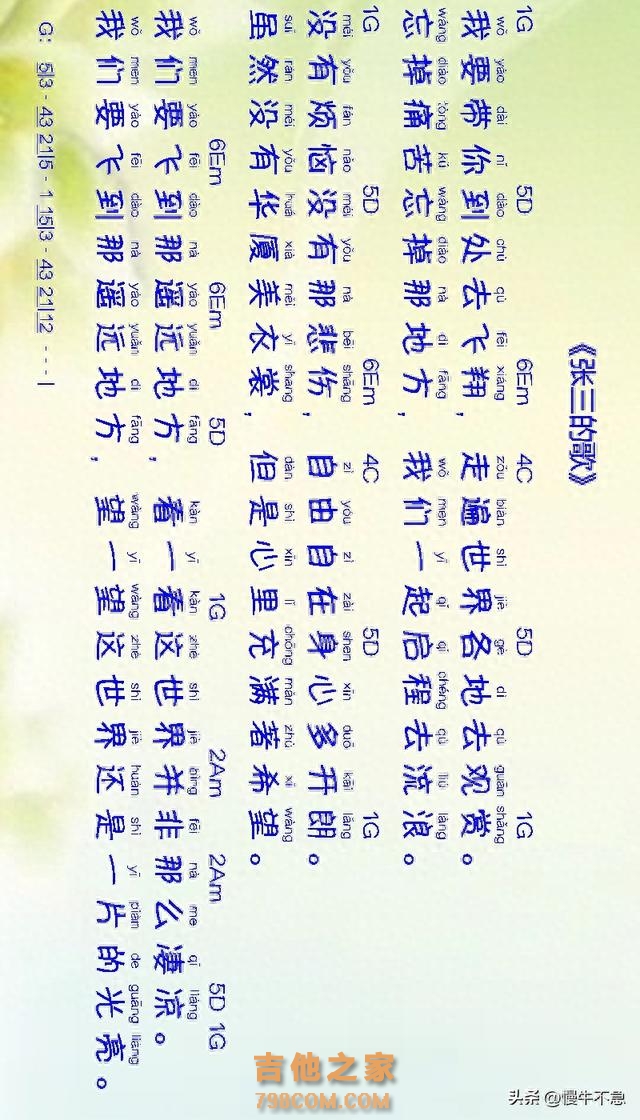 《张三的歌》
1G 5D 6Em 4C 5D 1G
wǒ yào dài nǐ dào chù qù fēi xiáng zǒu biàn shì jiè gè dì qù guān shǎng
我要带你到处去飞翔，走遍世界各地去观赏。
wàng diào tòng kǔ wàng diào nà dì fāng wǒ men yī qǐ qǐ chéng qù liú làng
忘掉痛苦忘掉那地方，我们一起启程去流浪。
1G 5D 6Em 4C 5D 1G
méi yǒu fán nǎo méi yǒu nà bēi shāng zì yóu zì zài shēn xīn duō kāi lǎng
没有烦恼没有那悲伤，自由自在身心多开朗。
suī rán méi yǒu huá xià měi yī shang dàn shì xīn lǐ chōng mǎn zhù xī wàng
虽然没有华厦美衣裳，但是心里充满著希望。
6Em 6Em 5D 1G 2Am 2Am 5D 1G
wǒ men yào fēi dào nà yáo yuǎn dì fāng kàn yī kàn zhè shì jiè bìng fēi nà me qī liáng
我们要飞到那遥远地方，看一看这世界并非那么凄凉。
wǒ men yào fēi dào nà yáo yuǎn dì fāng wàng yī wàng zhè shì jiè huán shì yī piàn de guāng liàng
我们要飞到那遥远地方，望一望这世界还是一片的光亮。
G: 5|3 - 43 21|5 - 1 15|3 - 43 21|12 - - - |
吉他之家
798COM.COM
头条 @慢牛不急